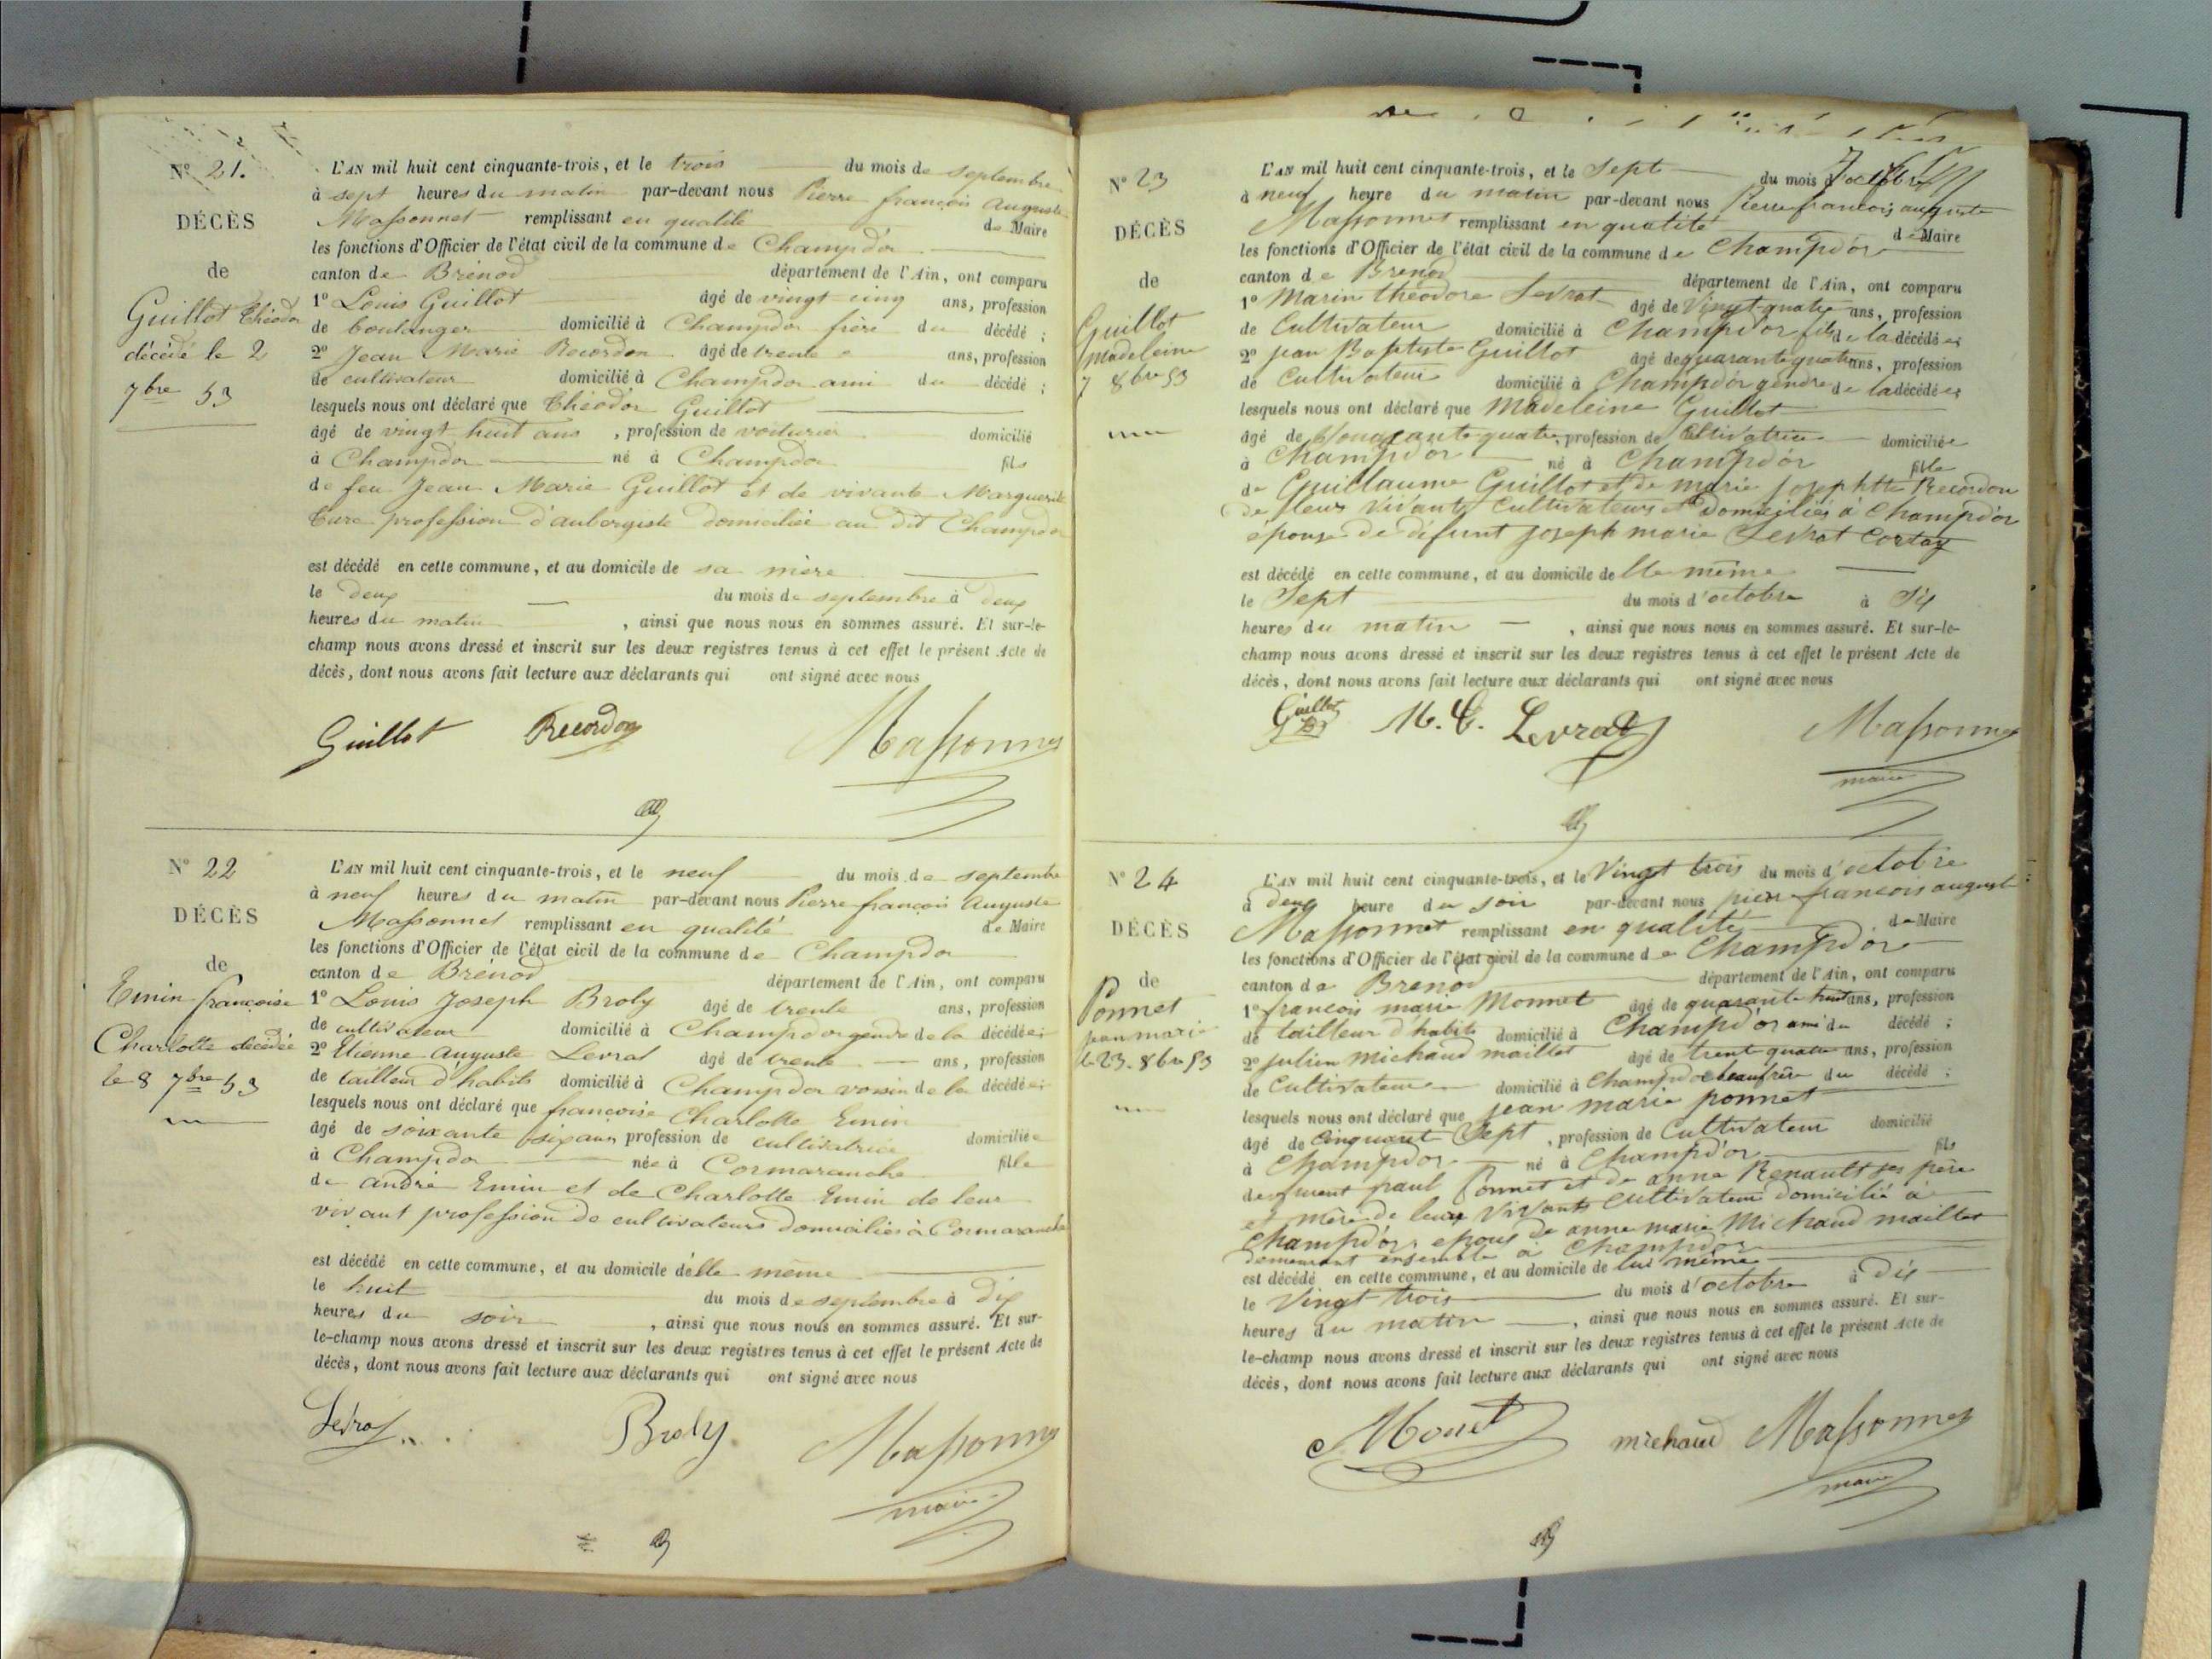 N° 21.
DÉCÈS
de
Guillot Théodor
décédé le 2
7bre 53
L'AN mil huit cent cinquante-trois, et le trois du mois de septembre
à sept heures du matin par-devant nous Pierre françois Auguste
Massonnet remplissant en qualité de Maire
les fonctions d'Officier de l'état civil de la commune de Champdor
canton de Brénod département de l'Ain, ont comparu
1° Louis Guillot âgé de vingt cinq ans, profession
de boulanger domicilié à Champdor frère du décédé ;
2° Jean Marie Recordon âgé de trente ans, profession
de cultivateur domicilié à Champdor ami du décédé ;
lesquels nous ont déclaré que Théodor Guillot
âgé de vingt huit ans , profession de voiturier domicilié
à Champdor né à Champdor fils
de feu Jean Marie Guillot et de vivante Marguerite
profession d'aubergiste domiciliée au dit Champdor
est décédé en cette commune, et au domicile de sa mère
le deux du mois de septembre à deux
heures du matin , ainsi que nous nous en sommes assuré. Et sur-le-
champ nous avons dressé et inscrit sur les deux registres tenus à cet effet le présent Acte de
décès, dont nous avons fait lecture aux déclarants qui ont signé avec nous
Guillot Recordon Massonnet
N° 22
DÉCÈS
de
Emin françoise
Charlotte décédée
le 8 7bre 53
L'AN mil huit cent cinquante-trois, et le neuf du mois de septembre
à neuf heures du matin par-devant nous Pierre françois Auguste
Massonnet remplissant en qualité de Maire
les fonctions d'Officier de l'état civil de la commune de Champdor
canton de Brénod département de l'Ain, ont comparu
1° Louis Joseph Broly âgé de trente ans, profession
de cultivateur domicilié à Champdor gendre de la décédée ;
2° Etienne Auguste Levrat âgé de trente ans, profession
de tailleur d'habits domicilié à Champdor voisin de la décédée ;
lesquels nous ont déclaré que françoise Charlotte Emin
âgé de soixante six ans, profession de cultivatrice domiciliée
à Champdor née à Cormaranche fille
de andré Emin et de Charlotte Emin de leur
vivant profession de cultivateurs domiciliés à Cormaranche
est décédé en cette commune, et au domicile d'elle même
le huit du mois de septembre à dix
heures du soir , ainsi que nous nous en sommes assuré. Et sur-
le-champ nous avons dressé et inscrit sur les deux registres tenus à cet effet le présent Acte de
décès, dont nous avons fait lecture aux déclarants qui ont signé avec nous
Levrat Broly Massonnet
maire
N° 23
DÉCÈS
de
Guillot
Madeleine
7 8bre 53
L'AN mil huit cent cinquante-trois, et le Sept du mois d'octobre
à neuf heure du matin par-devant nous Pierre francois auguste
Massonnet remplissant en qualité de Maire
les fonctions d'Officier de l'état civil de la commune de Champd'or
canton de Brenod département de l'Ain, ont comparu
1° Marin théodore Levrat âgé de Vingt quatre ans, profession
de Cultivateur domicilié à Champd'or fils de la décédée ;
2° jean Baptiste Guillot âgé de quarante quatre ans, profession
de Cultivateur domicilié à Champd'or gendre de la décédée ;
lesquels nous ont déclaré que Madeleine Guillot
âgé de quatre, profession de Cltivatrice domiciliée
à Champd'or né à Champd'or fille
de Guillaume Guillot et de marie josephtte Recordon
de Vivants Cultivateurs Domiciliés à Champd'or
épouse de défunt joseph marie Levrat Cortay
est décédé en cette commune, et au domicile de lle même
le Sept du mois d'octobre à Six
heures du matin , ainsi que nous nous en sommes assuré. Et sur-le-
champ nous avons dressé et inscrit sur les deux registres tenus à cet effet le présent Acte de
décès, dont nous avons fait lecture aux déclarants qui ont signé avec nous
Guillot M. T. Levrat Massonnet
maire
N° 24
DÉCÈS
de
Ponnet
jean marie
le 23. 8bre 53
L'AN mil huit cent cinquante-trois, et le Vingt trois du mois d'octobre
à deux heure du soir par-devant nous pierre francois auguste
Massonnet remplissant en qualité de Maire
les fonctions d'Officier de l'état civil de la commune de Champd'or
canton de Brenod département de l'Ain, ont comparu
1° francois marie Monnet âgé de quarante huit ans, profession
de tailleur d'habits domicilié à Champd'or ami du décédé ;
2° julien Michaud maillet âgé de trent quatre ans, profession
de Cultivateur domicilié à Champd'or beaufrère du décédé ;
lesquels nous ont déclaré que jean marie ponnet
âgé de Cinquant Sept , profession de Cultivateur domicilié
à Champd'or né à Champd'or fils
paul Ponnet et de anne Renault ses père
et mère de leur Vivants Cultivateur domicilié à
Champd'or, epous de anne marie Michaud maillet
demeurant ensemble à Champd'or
est décédé en cette commune, et au domicile de lui même
le Vingt trois du mois d'octobre à Dix
heures du matin , ainsi que nous nous en sommes assuré. Et sur-
le-champ nous avons dressé et inscrit sur les deux registres tenus à cet effet le présent Acte de
décès, dont nous avons fait lecture aux déclarants qui ont signé avec nous
Monet michaud Massonnet
maire